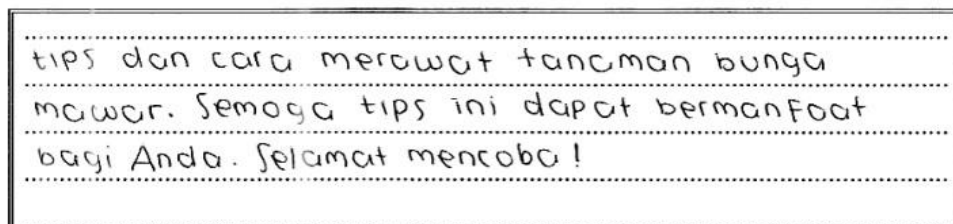 tips dan cara merawat tanaman bunga
mawar. Semoga tips ini dapat bermanfaat
bagi Anda. Selamat mencoba!